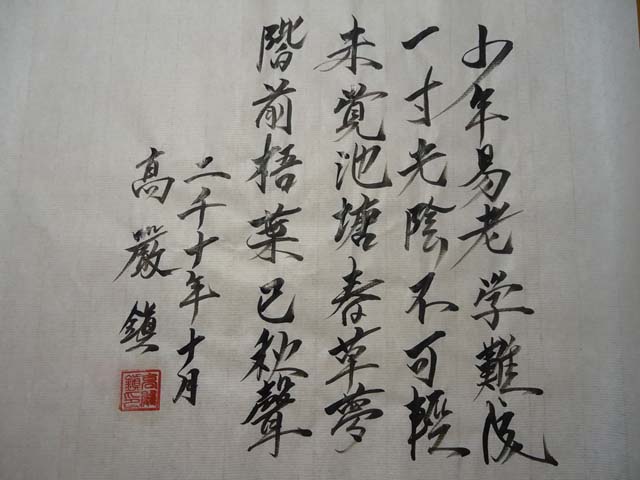 少年易老学難成
一寸光陰不可軽
未覚池塘春草夢
階前梧葉已秋聲
二千十年十月
高嚴鎮